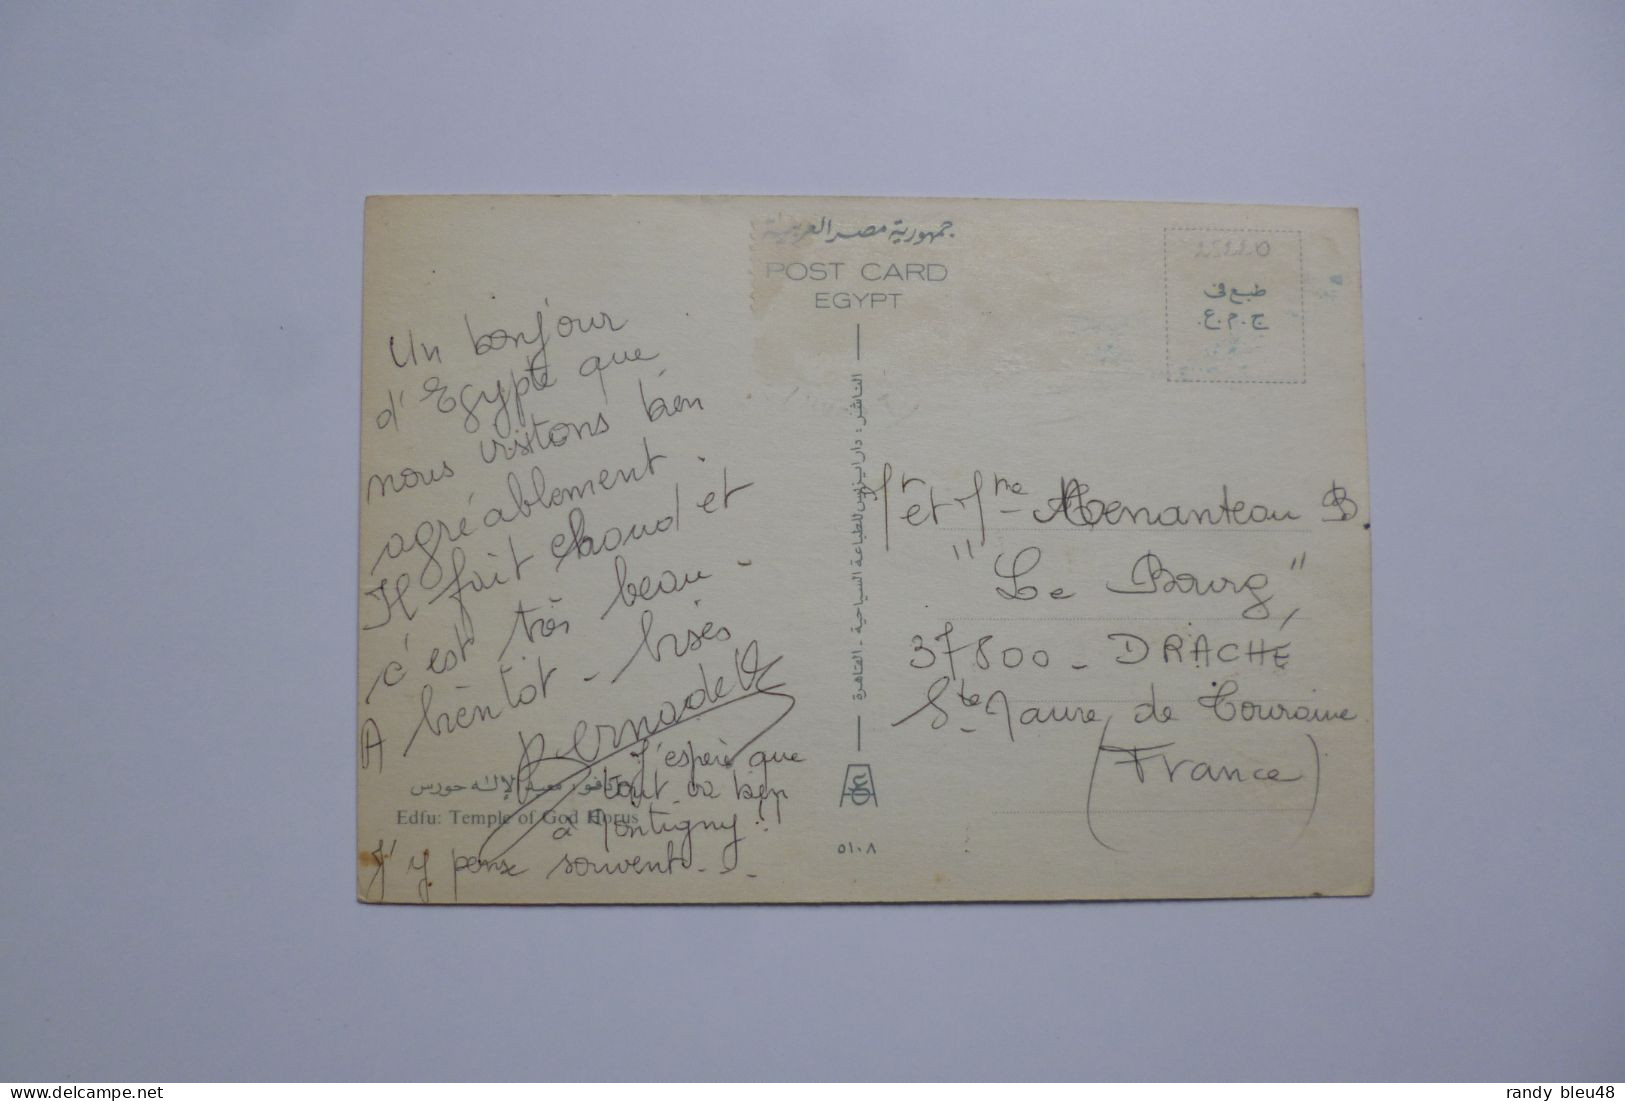 جمهورية مصر العربية
POST CARD
EGYPT
طبع فى
ج.م.ع.
Un bonjour
d'Egypte que
nous visitons bien
agréablement.
Il fait chaud et
c'est très beau -
A bientôt - bises
Bernadette
J'espère que
tout va bien
à Montigny!
J'y pense souvent...
إدفو: معبد الإله حورس
Edfu: Temple of God Horus
الناشر: دار ايزيس للطباعة السياحية - القاهرة
٥١٠٨
Mr et Mme Menanteau B.
"Le Bourg",
37800 - DRACHE
Ste Maure de Touraine
(France)
delcampe.net
randy bleu48